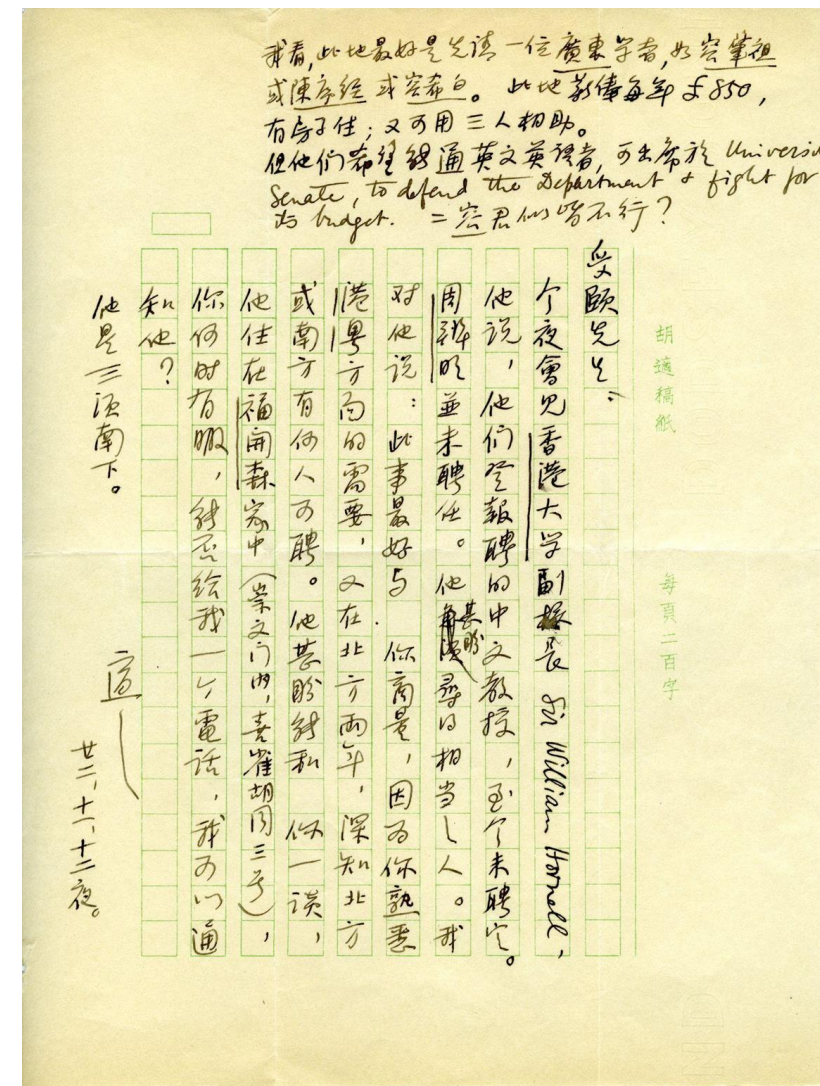 我看,此地最好是先請一位廣東学者,如容肇祖
或陳序經或容希白。此地薪俸每年£850,
有房子住;又可用三人相助。
但他們希望能通英文英語者,可出席於 Universi
Senate, to defend the Department & fight for
its budget. 二容君似皆不行?
受頤先生:
今夜會見香港大学副校長 Sir William Hornell,
他说,他們登報聘的中文教授,至今未聘定。
周辨明並未聘任。他甚盼尋得相当之人。我
对他说:此事最好与 你商量,因为你熟悉
港粤方面的需要,又在北方兩年,深知北方
或南方有何人可聘。他甚盼能和 你一談,
他住在福開森家中(崇文门内,喜雀胡同三号),
你何时有暇,能否给我一个電话,我可以通
知他?
他是三須南下。
適
廿二,十一,十二夜。
胡適稿紙
每頁二百字